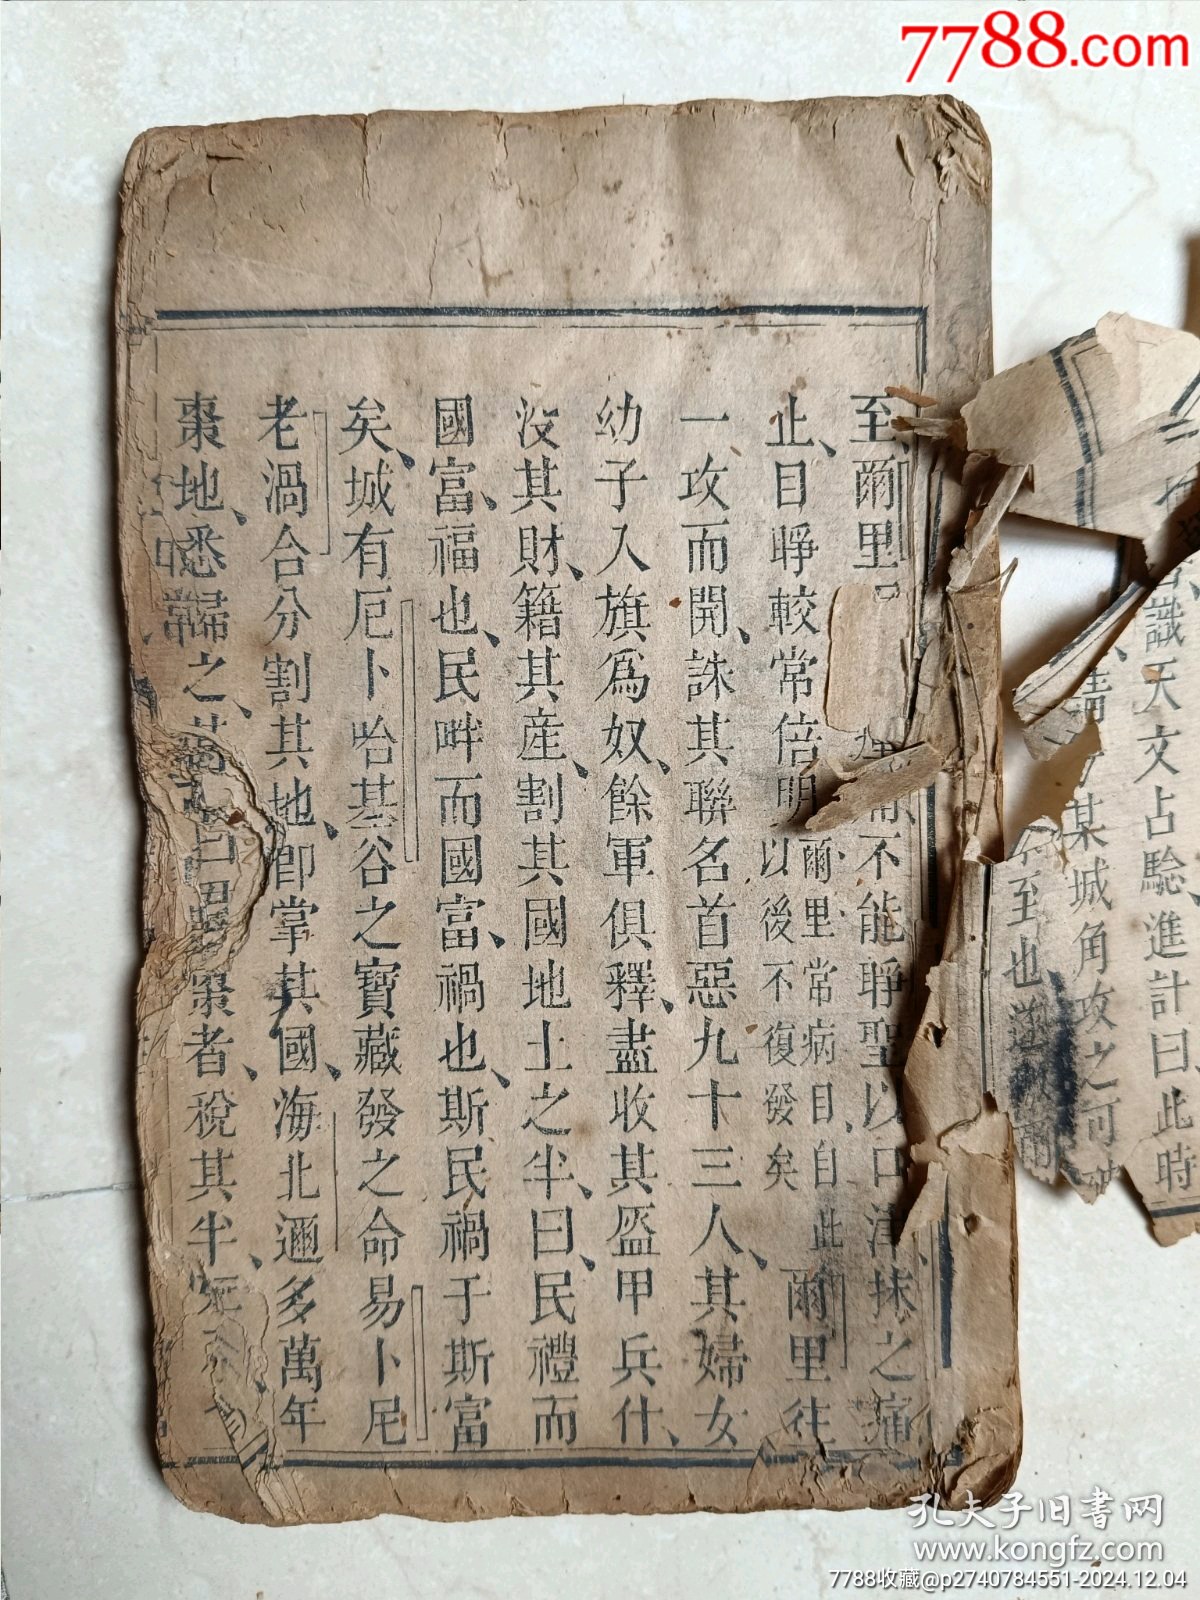 7788.com
至爾里
不能睜聖以口津抹之痛
止目睜較常倍明爾里常病目自此以後不復發矣爾里往
一攻而開誅其聯名首惡九十三人其婦女
幼子入旗爲奴餘軍俱釋盡收其盔甲兵什
沒其財籍其産割其國地土之半曰民禮而
國富福也民畔而國富禍也斯民禍于斯富
矣城有厄卜哈基谷之寶藏發之命易卜尼
老渦合分割其地卽掌其國海北邇多萬年
棗地悉歸之
棗者稅其半
識天文占驗進計曰此時
某城角攻之可破
至也
孔夫子旧書网
www.kongfz.com
7788收藏@p2740784551-2024.12.04